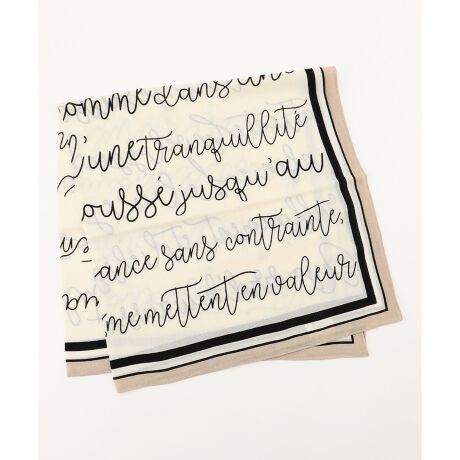 omme dans une
L'une tranquillité
oussé jusqu'au
ance sans contrainte,
me mettent en valeur